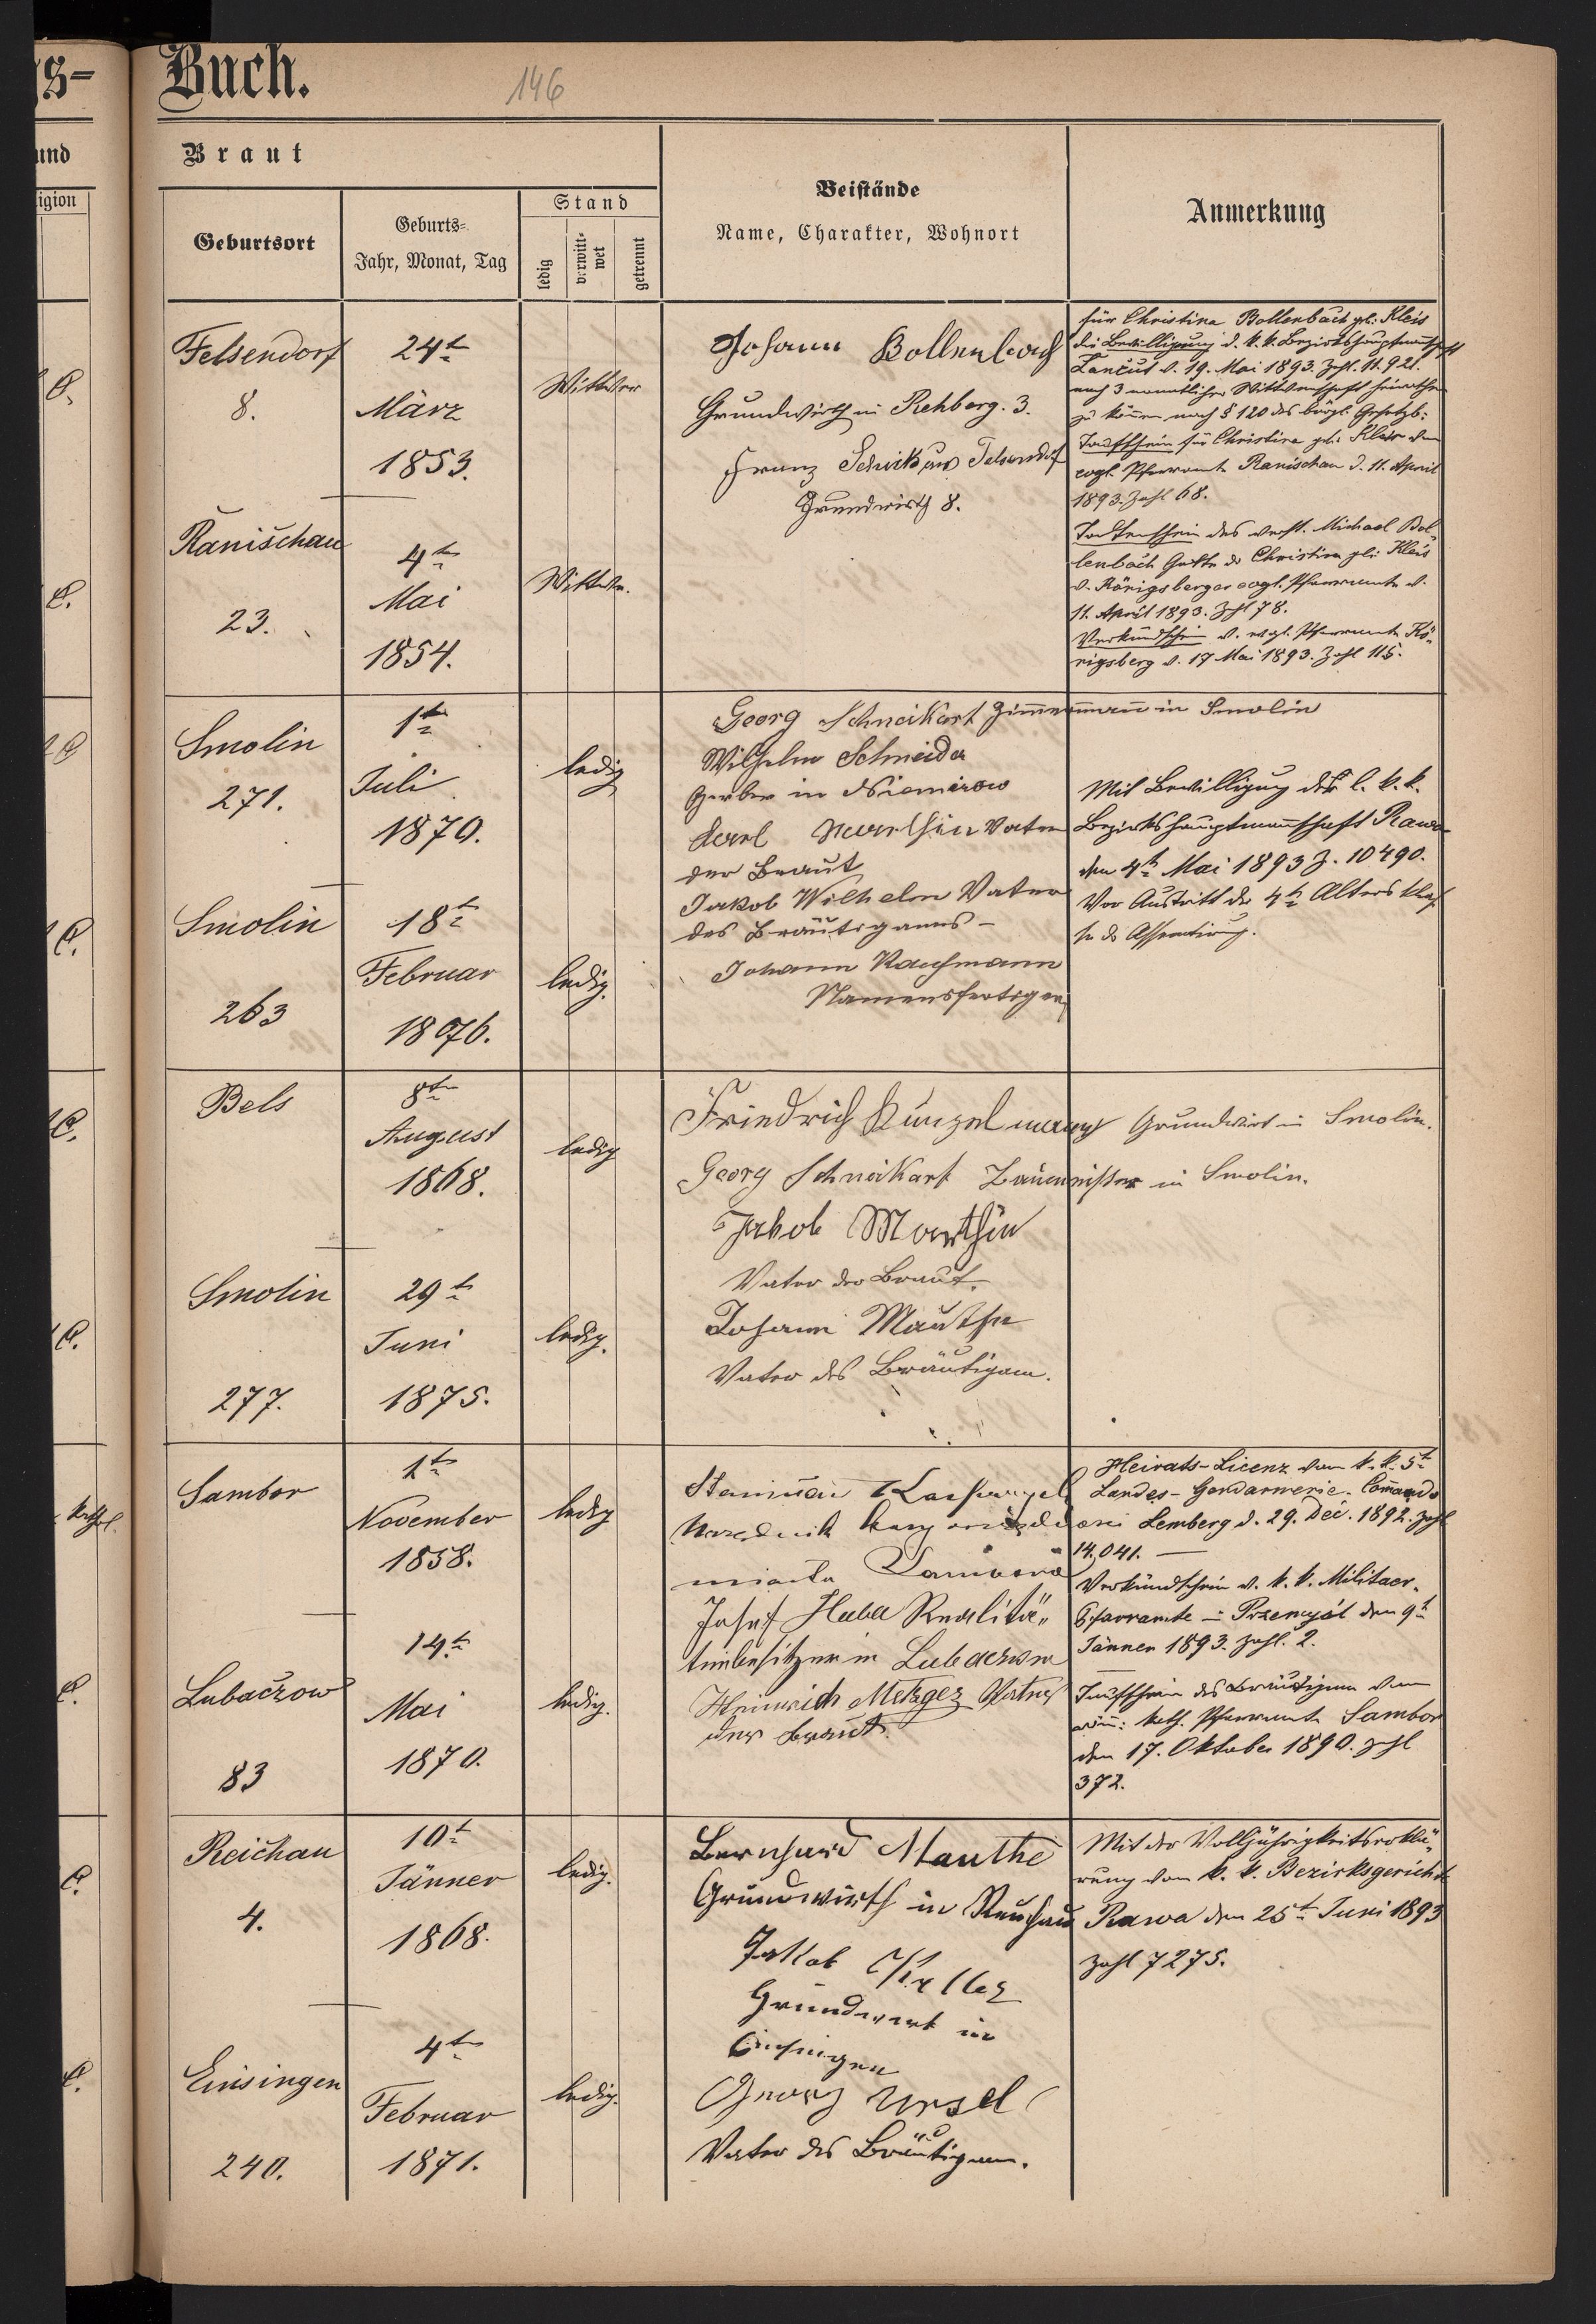 s-
Buch.
146
und
igion
Braut
Geburtsort
Geburts-
Jahr, Monat, Tag
Stand
ledig
verwitt-
wet
getrennt
Beistände
Name, Charakter, Wohnort
Anmerkung
Felsendorf
8.
24t
März
1853.
Wittwer
Johann Bollenbach
Grundwirth in Rehberg. 3.
Franz Schick aus Felsendorf
Grundwirth 8.
für Christina Bollenbach geb. Kleis
die Bewilligung d. k. k. Bezirkshauptmannschaft
Lancut v. 19. Mai 1893. Zhl. 11.921.
nach 3 monatlicher Wittwenschaft heirathen
zu können nach § 120 des bürgl. Gesetzb:
Taufschein für Christina geb. Kleis vom
evgl. Pfarramte Ranischau d. 11. April
1893. Zahl 68.
Ranischau
23.
4t
Mai
1854.
Wittwe.
Todtenschein des verst. Michael Bol-
lenbach Gatte der Christina geb. Kleis
v. Königsberger evgl. Pfarramte v.
11. April 1893. Zhl 78.
Verkündschein v. evgl. Pfarramte Kö-
nigsberg v. 17 Mai 1893. Zahl 115.
Smolin
271.
1t
Juli
1870.
ledig
Georg Schneikart Zimmermann in Smolin
Wilhelm Schneider
Gerber in Niemirow
Karl Vater
der Braut
Jakob Wilhelm Vater
des Bräutigams -
Johann Kaufmann
Namensfertiger
Mit Bewilligung der l. k. k.
Bezirkshauptmannschaft Rawa
den 4t Mai 1893 Z. 10490.
Vor Austritt der 4t Altersklas
se der Assentirung.
Smolin
263
18t
Februar
1876.
ledig.
Bels
8t
August
1868.
ledig
Friedrich Kunzelmann Grundwirt in Smolin.
Georg Schneikart Baumeister in Smolin.
Jakob Manthin
Vater der Braut.
Johann Mauthe
Vater des Bräutigam.
Smolin
277.
29t
Juni
1875.
ledig.
Sambor
1t
November
1858.
ledig
miasta Sambora
Josef Huber Realitä-
tenbesitzer in Lubaczow
Heinrich Metzger Vater
der Braut.
Heirats-Licenz vom k. k. 5t
Landes-Gendarmerie-Comando
Lemberg d. 29. Dec. 1892. Zahl
14,041. —
Verkündschein v. k. k. Militaer-
Pfarramte in Przemyśl den 9t
Jänner 1893. Zahl. 2.
Taufschein des Bräutigam vom
röm: kath. Pfarramte Sambor
den 17. Oktober 1890. Zahl
372.
Lubaczow
83
14t
Mai
1870.
ledig.
Reichau
4.
10t
Jänner
1868.
ledig.
Bernhard Mauthe
Grundwirth in Reichau
Jakob Keller
Grundwirt in
Einsingen
Georg Ursel
Vater des Bräutigam.
Mit der Volljährigkeitserklä-
rung vom k. k. Bezirksgericht
Rawa den 25t Juni 1893
Zahl 7275.
Einsingen
240.
4t
Februar
1871.
ledig.